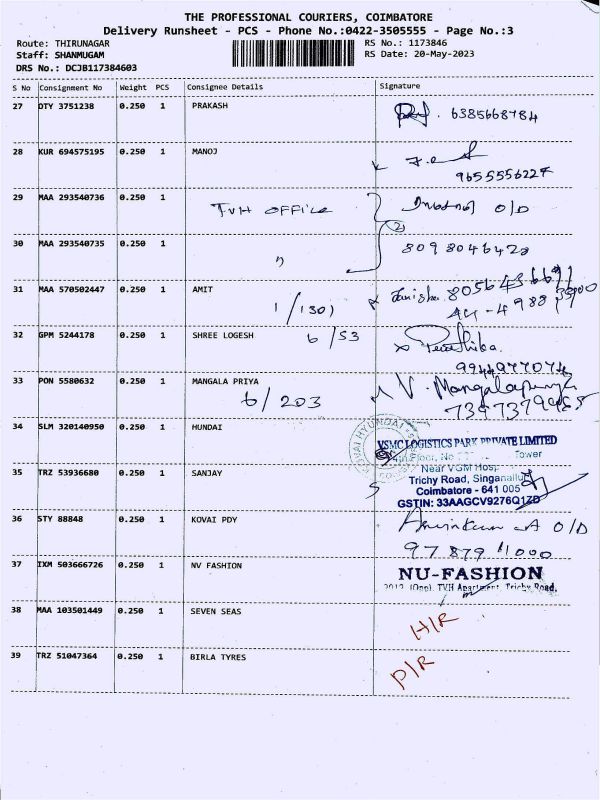 THE PROFESSIONAL COURIERS, COIMBATORE
Delivery Runsheet - PCS - Phone No.:0422-3505555 - Page No.:3
Route: THIRUNAGAR
RS No.: 1173846
Staff: SHANMUGAM
RS Date: 20-May-2023
DRS No.: DCJB117384603
S No Consignment No Weight PCS Consignee Details Signature
27 DTY 3751238 0.250 1 PRAKASH
6385668784
28 KUR 694575195 0.250 1 MANOJ
9655556227
29 MAA 293540736 0.250 1 TVH OFFICE O/D
30 MAA 293540735 0.250 1 " 2
8098046428
31 MAA 570502447 0.250 1 AMIT
1/1301
32 GPM 5244178 0.250 1 SHREE LOGESH 6/53
9944977074
33 PON 5580632 0.250 1 MANGALA PRIYA V. Mangalapriya
6/203
34 SLM 320140950 0.250 1 HUNDAI
VSMC LOGISTICS PARK PRIVATE LIMITED
Floor, Tower
35 TRZ 53936680 0.250 1 SANJAY
Near VGM Hosp
Trichy Road, Singanallur
Coimbatore - 641 005
GSTIN: 33AAGCV9276Q1ZD
36 STY 88848 0.250 1 KOVAI PDY
A O/D
37 IXM 503666726 0.250 1 NV FASHION
NU-FASHION
TVH Apartment, Trichy Road,
38 MAA 103501449 0.250 1 SEVEN SEAS H/R
39 TRZ 51047364 0.250 1 BIRLA TYRES P/R